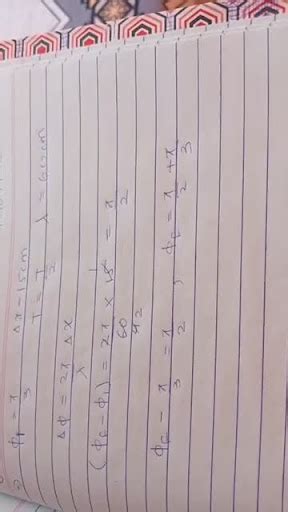 φ₁ = π/3   Δx = 15cm
T = T/2   λ = 60cm
Δφ = 2π/λ Δx
(φ₂ - φ₁) = 2π/60 × 15 = π/2
φ₂ - π/3 = π/2 , φ₂ = π/2 + π/3